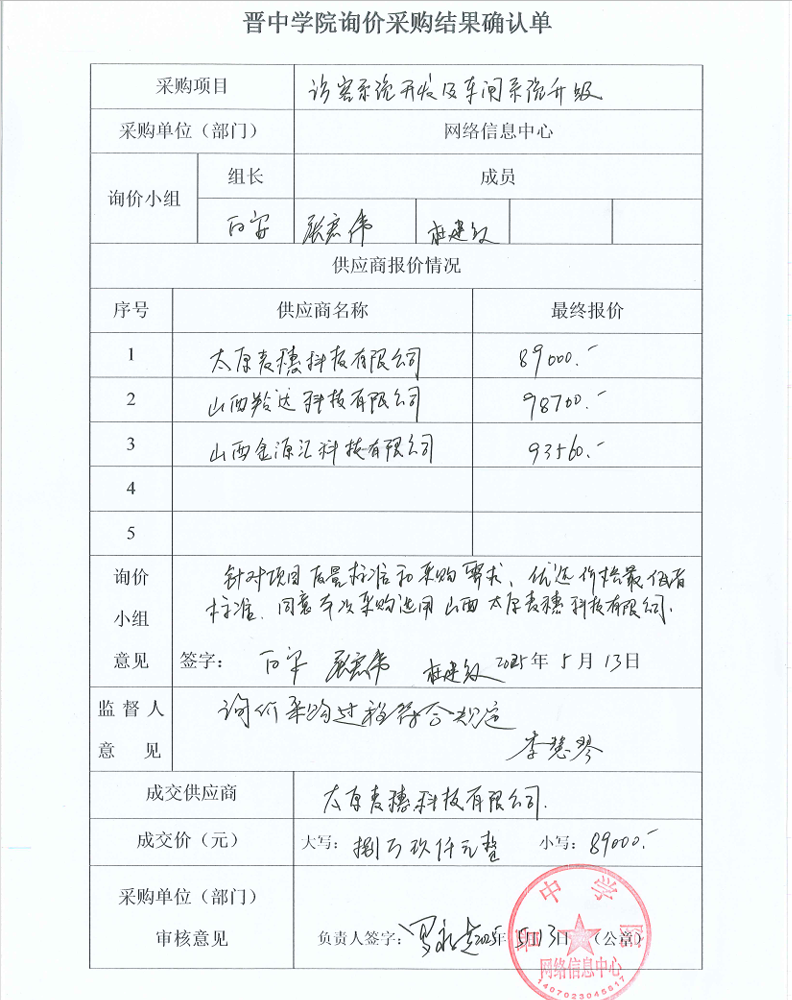 晋中学院询价采购结果确认单
采购项目 访客系统开发及车闸系统升级
采购单位（部门） 网络信息中心
询价小组 组长 成员
白宇 杜建纹
供应商报价情况
序号 供应商名称 最终报价
1 太原麦穗科技有限公司 89000.-
2 山西羚达科技有限公司 98700.-
3 山西金源汇科技有限公司 93560.-
4
5
询价
小组
意见
针对项目质量标准和采购要求、优选价格最低者
标准、同意本次采购选用山西太原麦穗科技有限公司.
签字： 白宇 2025年5月13日
监督人
意见
询价采购过程符合规定
李慧琴
成交供应商 太原麦穗科技有限公司.
成交价（元） 大写：捌万玖仟元整 小写：89000.-
采购单位（部门）
审核意见
负责人签字： 2025年5月13日（公章）
晋中学院
网络信息中心
1407023045017